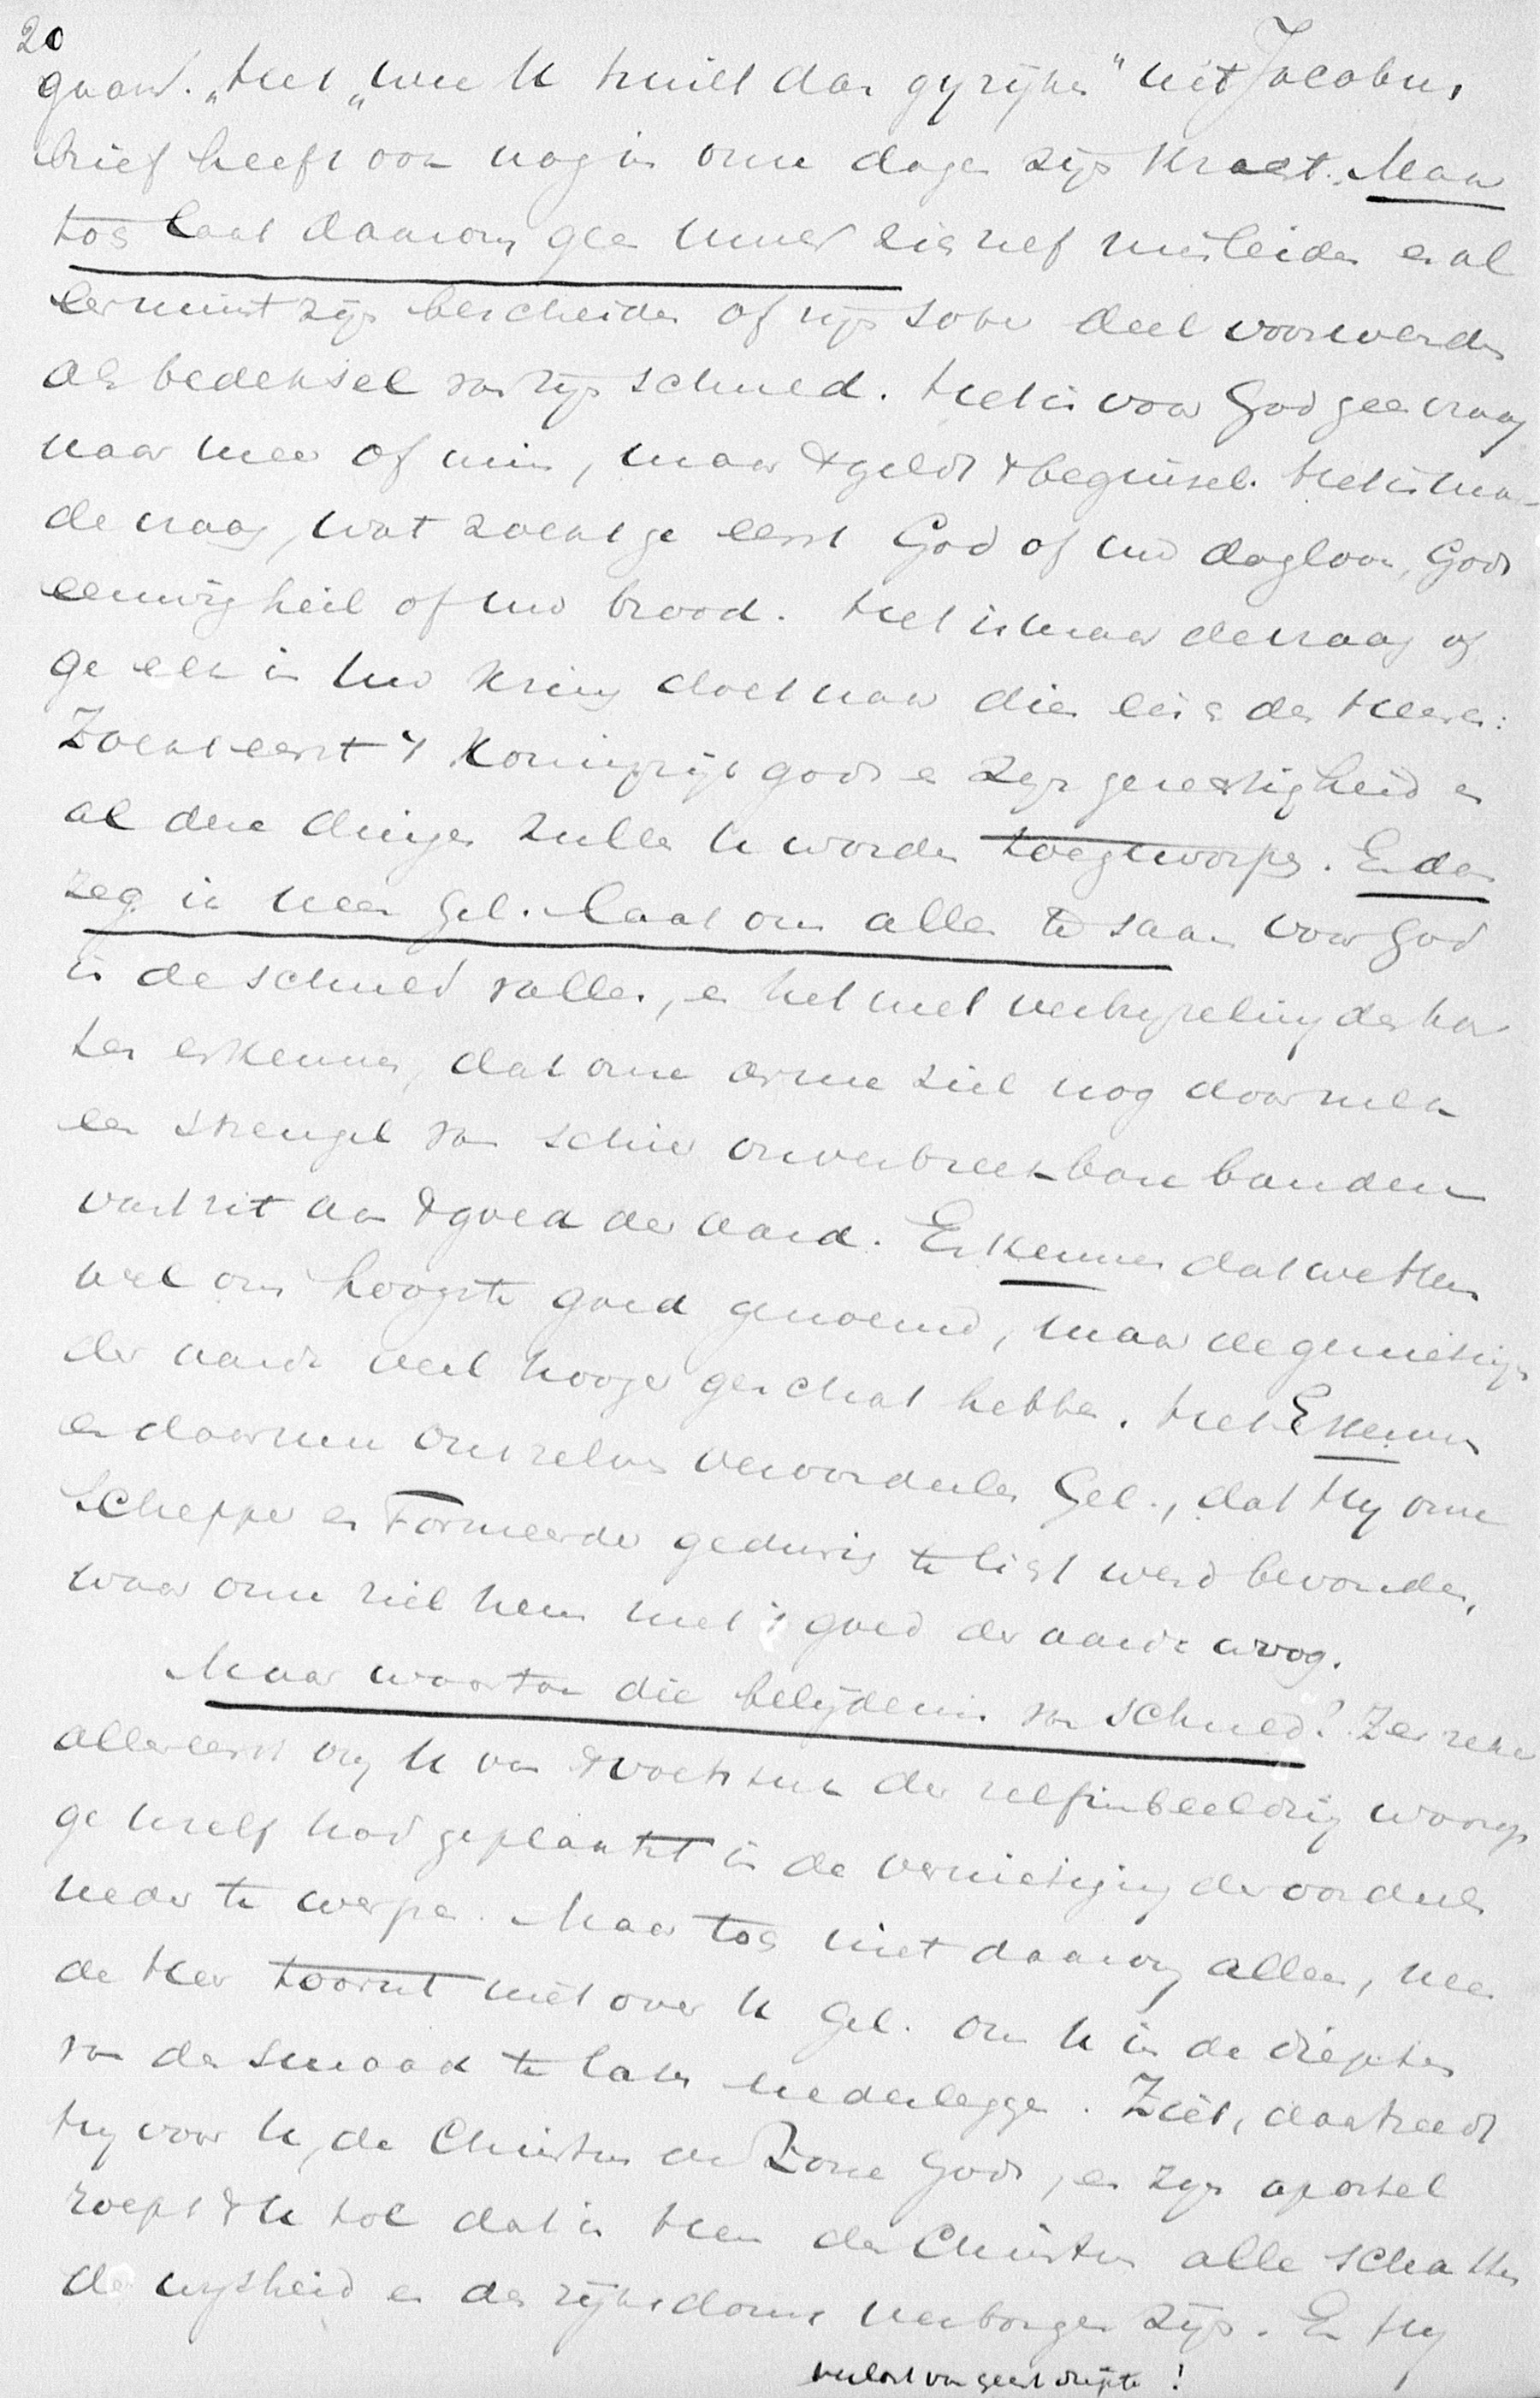 20
gaan. „Het „wee U huilt dan gy rijken" uit Jacobus
brief heeft ook nog in onze dagen zijn kracht. Maar
toch laat daarom geen mensch zich zelf misleiden en al
terminst zijn bescheiden of zijn sober deel voorwenden
als bedeksel van zijn schuld. Het is voor God geen vraag
naar meer of min, maar 't geldt 't beginsel. Het is maar
de vraag, wat zoekt ge eerst God of uw dagloon, Gods
eeuwig heil of uw brood. Het is maar de vraag of
ge elk in uw kring doet naar dien eisch des Heeren:
Zoekt eerst 't Koningrijk gods en Zijn gerechtigheid en
al deze dingen zullen U worden toegeworpen. En dan
zeg ik neen Gel. laat ons allen te saam voor God
in de schuld vallen, en het met verbryzeling des har
ten erkennen, dat onze arme ziel nog door zulk
een strengel van schier onverbreekbare banden
vast zit aan 't goed der aard. Erkennen dat we Hem
wel ons hoogste goed genoemd, maar de genietingen
der aarde veel hooger geschat hebben. Het Erkennen
en daarmee onszelven veroordeelen Gel., dat Hy onze
Schepper en Formeerder gedurig te licht werd bevonden,
waar onze ziel hem met 't goed der aarde woog.
Maar waartoe die belijdenis van schuld? Zeer zeker
allereerst om U van 't voetstuk der zelfinbeelding waarop
ge uzelf had geplaatst in de vernietiging der oordeelen
neder te werpen. Maar toch niet daarom alleen, neen
de Heer toornt niet over U Gel. om U in de diepten
van de smaad te laten nederleggen. Ziet, daar treedt
Hy voor U, de Christus de Zone Gods, en zijn apostel
roept 't U toe dat in Hem den Christus alle schatten
der wijsheid en des rijkdoms verborgen zijn. En Hy